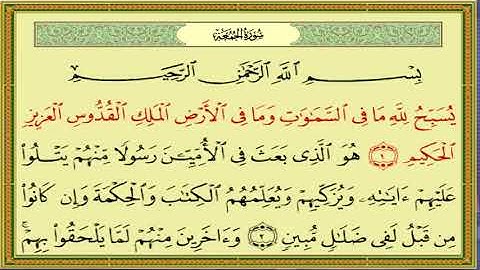 سُورَةُ الجُمُعَةِ
بِسْمِ اللَّهِ الرَّحْمَٰنِ الرَّحِيمِ
يُسَبِّحُ لِلَّهِ مَا فِي السَّمَٰوَٰتِ وَمَا فِي الْأَرْضِ الْمَلِكِ الْقُدُّوسِ الْعَزِيزِ
الْحَكِيمِ ١ هُوَ الَّذِي بَعَثَ فِي الْأُمِّيِّـۧنَ رَسُولًا مِّنْهُمْ يَتْلُوا
عَلَيْهِمْ ءَايَٰتِهِ وَيُزَكِّيهِمْ وَيُعَلِّمُهُمُ الْكِتَٰبَ وَالْحِكْمَةَ وَإِن كَانُوا
مِن قَبْلُ لَفِي ضَلَٰلٍ مُّبِينٍ ٢ وَءَاخَرِينَ مِنْهُمْ لَمَّا يَلْحَقُوا بِهِمْ ۚ